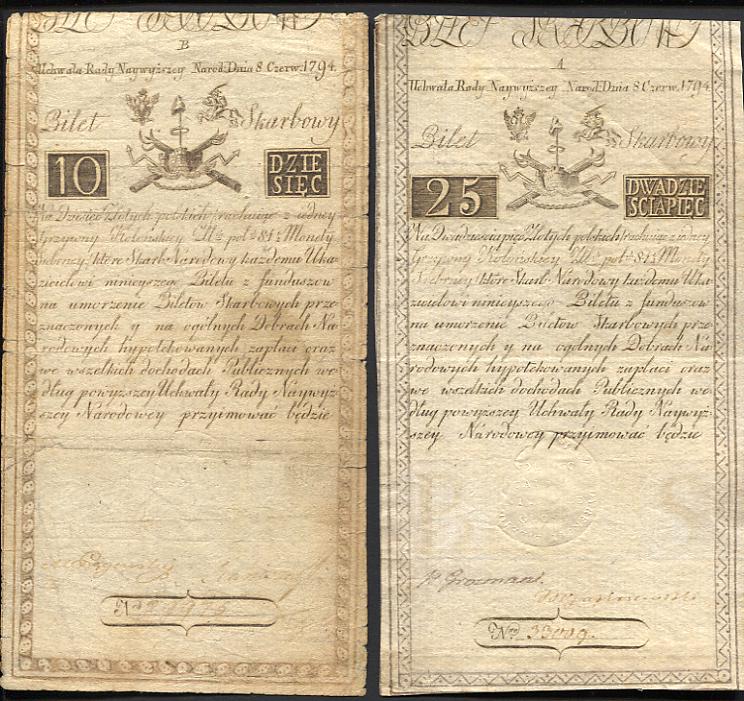 B
Uchwała Rady Naywyższey Narod: Dnia 8 Czerw: 1794.
Bilet Skarbowy
10 DZIE
SIĘC
Na Dziesięć Złotych polskich rachuiąc z iedney
Grzywny Koleńskiey Złł. pol: 84½ Monety
Srebrney, które Skarb Národowy każdemu Uka-
zicielowi ninieyszego Biletu z funduszow
na umorzenie Biletow Skarbowych prze-
znaczonych y na ogólnych Dobrach Na-
rodowych hypotekowanych zapłaci oraz
we wszelkich dochodach Publicznych we-
dług powyższey Uchwały Rady Naywyż-
szey Národowey przyimować będzie
No
BILET SKARBOWY
A
Uchwała Rady Naywyższey Narod: Dnia 8 Czerw: 1794
Bilet Skarbowy
25 DWADZIE
SCIAPIEC
Na Dwadzieścia pięć Złotych polskich rachuiąc z iedney
Grzywny Koleńskiey Złł. pol: 84½ Monety
Srebrney, które Skarb Národowy każdemu Uka-
zicielowi ninieyszego Biletu z funduszow
na umorzenie Biletow Skarbowych prze-
znaczonych y na ogólnych Dobrach Na-
rodowych hypotekowanych zapłaci oraz
we wszelkich dochodach Publicznych we-
dług powyższey Uchwały Rady Naywyż-
szey Národowey przyimować będzie
No 33009.